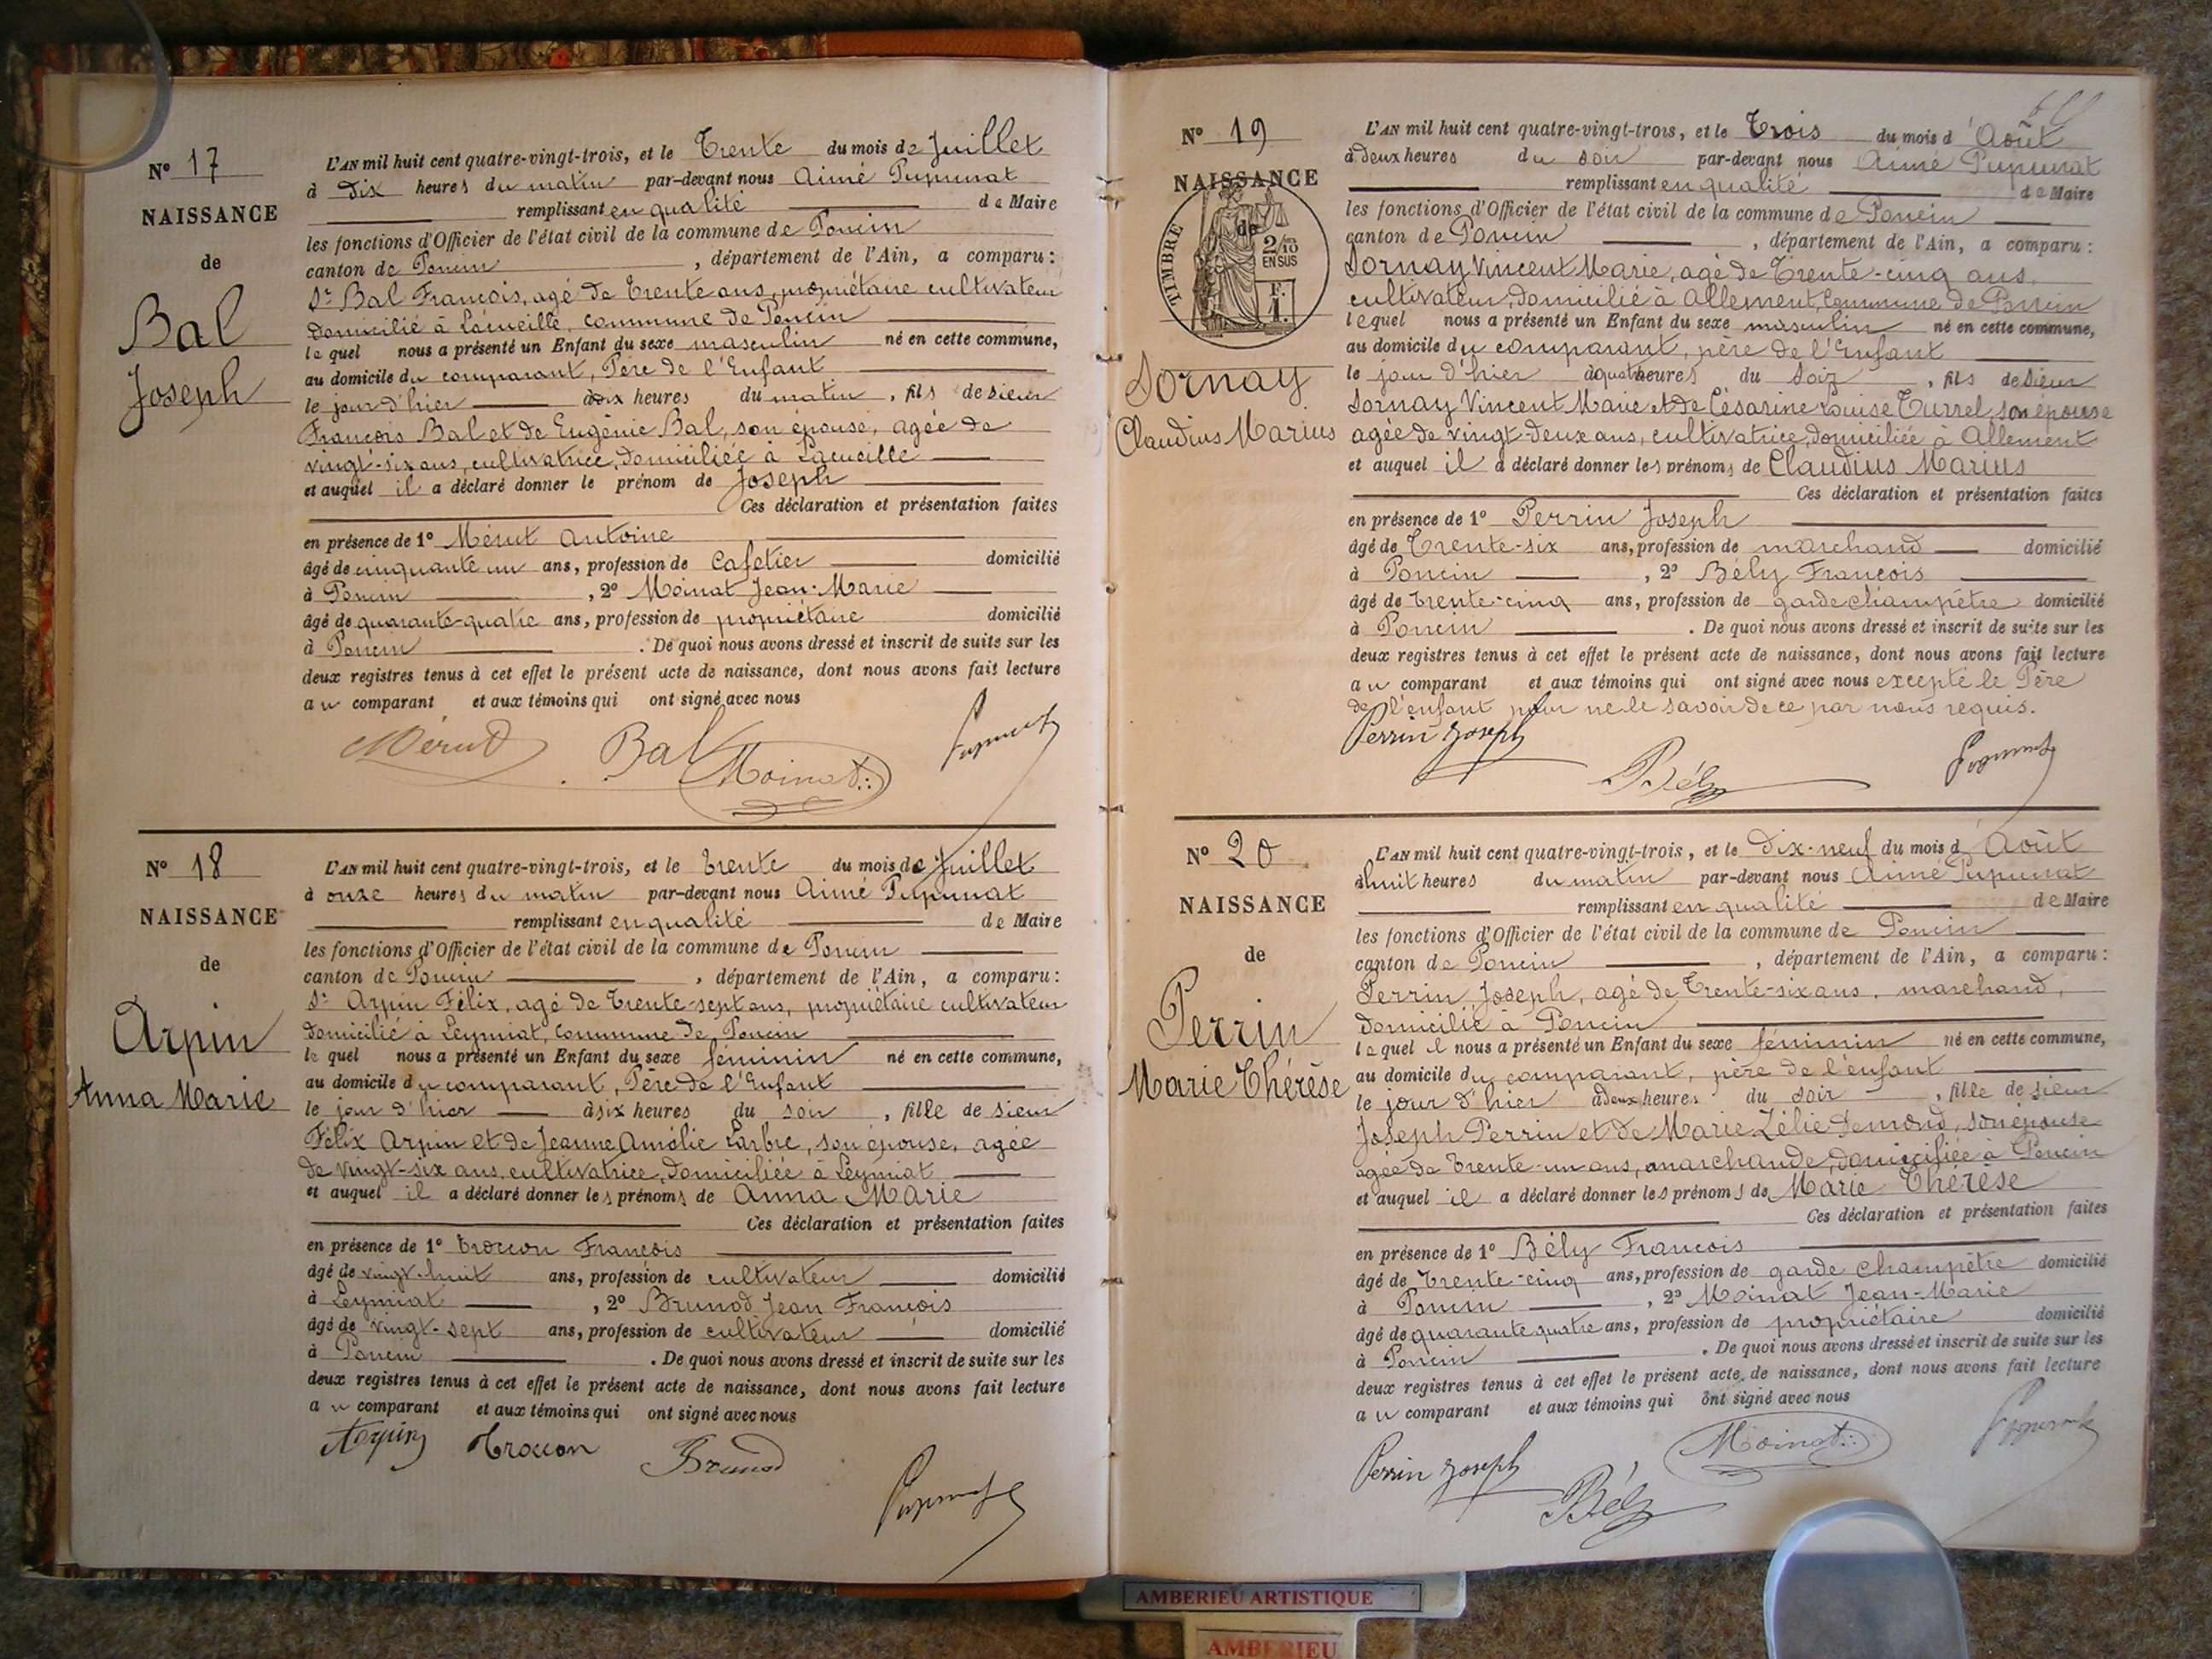 N° 17
NAISSANCE
de
Bal
Joseph
L'AN mil huit cent quatre-vingt-trois, et le Trente du mois de Juillet
à Dix heures du matin par-devant nous Aimé Pupunat
remplissant en qualité de Maire
les fonctions d'Officier de l'état civil de la commune de Poncin
canton de Poncin, département de l'Ain, a comparu :
Sr Bal François, agé de Trente ans, propriétaire cultivateur
domicilié à Lacueille, commune de Poncin
lequel nous a présenté un Enfant du sexe masculin né en cette commune,
au domicile du comparant, Père de l'Enfant
le jour d'hier à dix heures du matin, fils de sieur
François Bal et de Eugénie Bal, son épouse, agée de
vingt-six ans, cultivatrice, domiciliée à Lacueille
et auquel il a déclaré donner le prénom de Joseph
Ces déclaration et présentation faites
en présence de 1° Mérut Antoine
âgé de cinquante un ans, profession de Cafetier domicilié
à Poncin, 2° Moinat Jean-Marie
âgé de quarante-quatre ans, profession de propriétaire domicilié
à Poncin. De quoi nous avons dressé et inscrit de suite sur les
deux registres tenus à cet effet le présent acte de naissance, dont nous avons fait lecture
au comparant et aux témoins qui ont signé avec nous
Mérut Bal Moinat Pupunat
N° 18
NAISSANCE
de
Arpin
Anna Marie
L'AN mil huit cent quatre-vingt-trois, et le Trente du mois de Juillet
à onze heures du matin par-devant nous Aimé Pupunat
remplissant en qualité de Maire
les fonctions d'Officier de l'état civil de la commune de Poncin
canton de Poncin, département de l'Ain, a comparu :
Sr Arpin Félix, agé de Trente-sept ans, propriétaire cultivateur
domicilié à Leymiat, commune de Poncin
lequel nous a présenté un Enfant du sexe féminin né en cette commune,
au domicile du comparant, Père de l'Enfant
le jour d'hier à six heures du soir, fille de sieur
Félix Arpin et de Jeanne Amélie Larbre, son épouse, agée
de vingt-six ans, cultivatrice, domiciliée à Leymiat
et auquel il a déclaré donner les prénoms de Anna Marie
Ces déclaration et présentation faites
en présence de 1° Trocon François
âgé de vingt-huit ans, profession de cultivateur domicilié
à Leymiat, 2° Brunod Jean François
âgé de vingt-sept ans, profession de cultivateur domicilié
à Poncin. De quoi nous avons dressé et inscrit de suite sur les
deux registres tenus à cet effet le présent acte de naissance, dont nous avons fait lecture
au comparant et aux témoins qui ont signé avec nous
Arpin Trocon Brunod
Pupunat
N° 19
NAISSANCE
de
TIMBRE
2/10 EN SUS
F. 1.
Sornay
Claudius Marius
L'AN mil huit cent quatre-vingt-trois, et le Trois du mois d'Août
à Deux heures du soir par-devant nous Aimé Pupunat
remplissant en qualité de Maire
les fonctions d'Officier de l'état civil de la commune de Poncin
canton de Poncin, département de l'Ain, a comparu :
Sornay Vincent Marie, agé de Trente-cinq ans,
cultivateur, domicilié à Allement, Commune de Poncin
lequel nous a présenté un Enfant du sexe masculin né en cette commune,
au domicile du comparant, père de l'Enfant
le jour d'hier à quatre heures du soir, fils de sieur
Sornay Vincent Marie et de Césarine Louise Turrel, son épouse
agée de vingt-deux ans, cultivatrice, domiciliée à Allement
et auquel il a déclaré donner les prénoms de Claudius Marius
Ces déclaration et présentation faites
en présence de 1° Perrin Joseph
âgé de Trente-six ans, profession de marchand domicilié
à Poncin, 2° Bély François
âgé de Trente-cinq ans, profession de garde champêtre domicilié
à Poncin. De quoi nous avons dressé et inscrit de suite sur les
deux registres tenus à cet effet le présent acte de naissance, dont nous avons fait lecture
au comparant et aux témoins qui ont signé avec nous excepté le Père
de l'enfant pour ne le savoir de ce par nous requis.
Perrin Joseph Bély Pupunat
N° 20
NAISSANCE
de
Perrin
Marie Thérèse
L'AN mil huit cent quatre-vingt-trois, et le Dix-neuf du mois d'Août
à huit heures du matin par-devant nous Aimé Pupunat
remplissant en qualité de Maire
les fonctions d'Officier de l'état civil de la commune de Poncin
canton de Poncin, département de l'Ain, a comparu :
Perrin Joseph, agé de Trente-six ans, marchand,
domicilié à Poncin
lequel il nous a présenté un Enfant du sexe féminin né en cette commune,
au domicile du comparant, père de l'enfant
le jour d'hier à deux heures du soir, fille de sieur
Joseph Perrin et de Marie Zélie Demond, son épouse
agée de Trente-un ans, marchande, domiciliée à Poncin
et auquel il a déclaré donner les prénoms de Marie Thérèse
Ces déclaration et présentation faites
en présence de 1° Bély François
âgé de Trente-cinq ans, profession de garde champêtre domicilié
à Poncin, 2° Moinat Jean-Marie
âgé de quarante quatre ans, profession de propriétaire domicilié
à Poncin. De quoi nous avons dressé et inscrit de suite sur les
deux registres tenus à cet effet le présent acte de naissance, dont nous avons fait lecture
au comparant et aux témoins qui ont signé avec nous
Perrin Joseph Bély Moinat Pupunat
AMBERIEU ARTISTIQUE
AMBERIEU